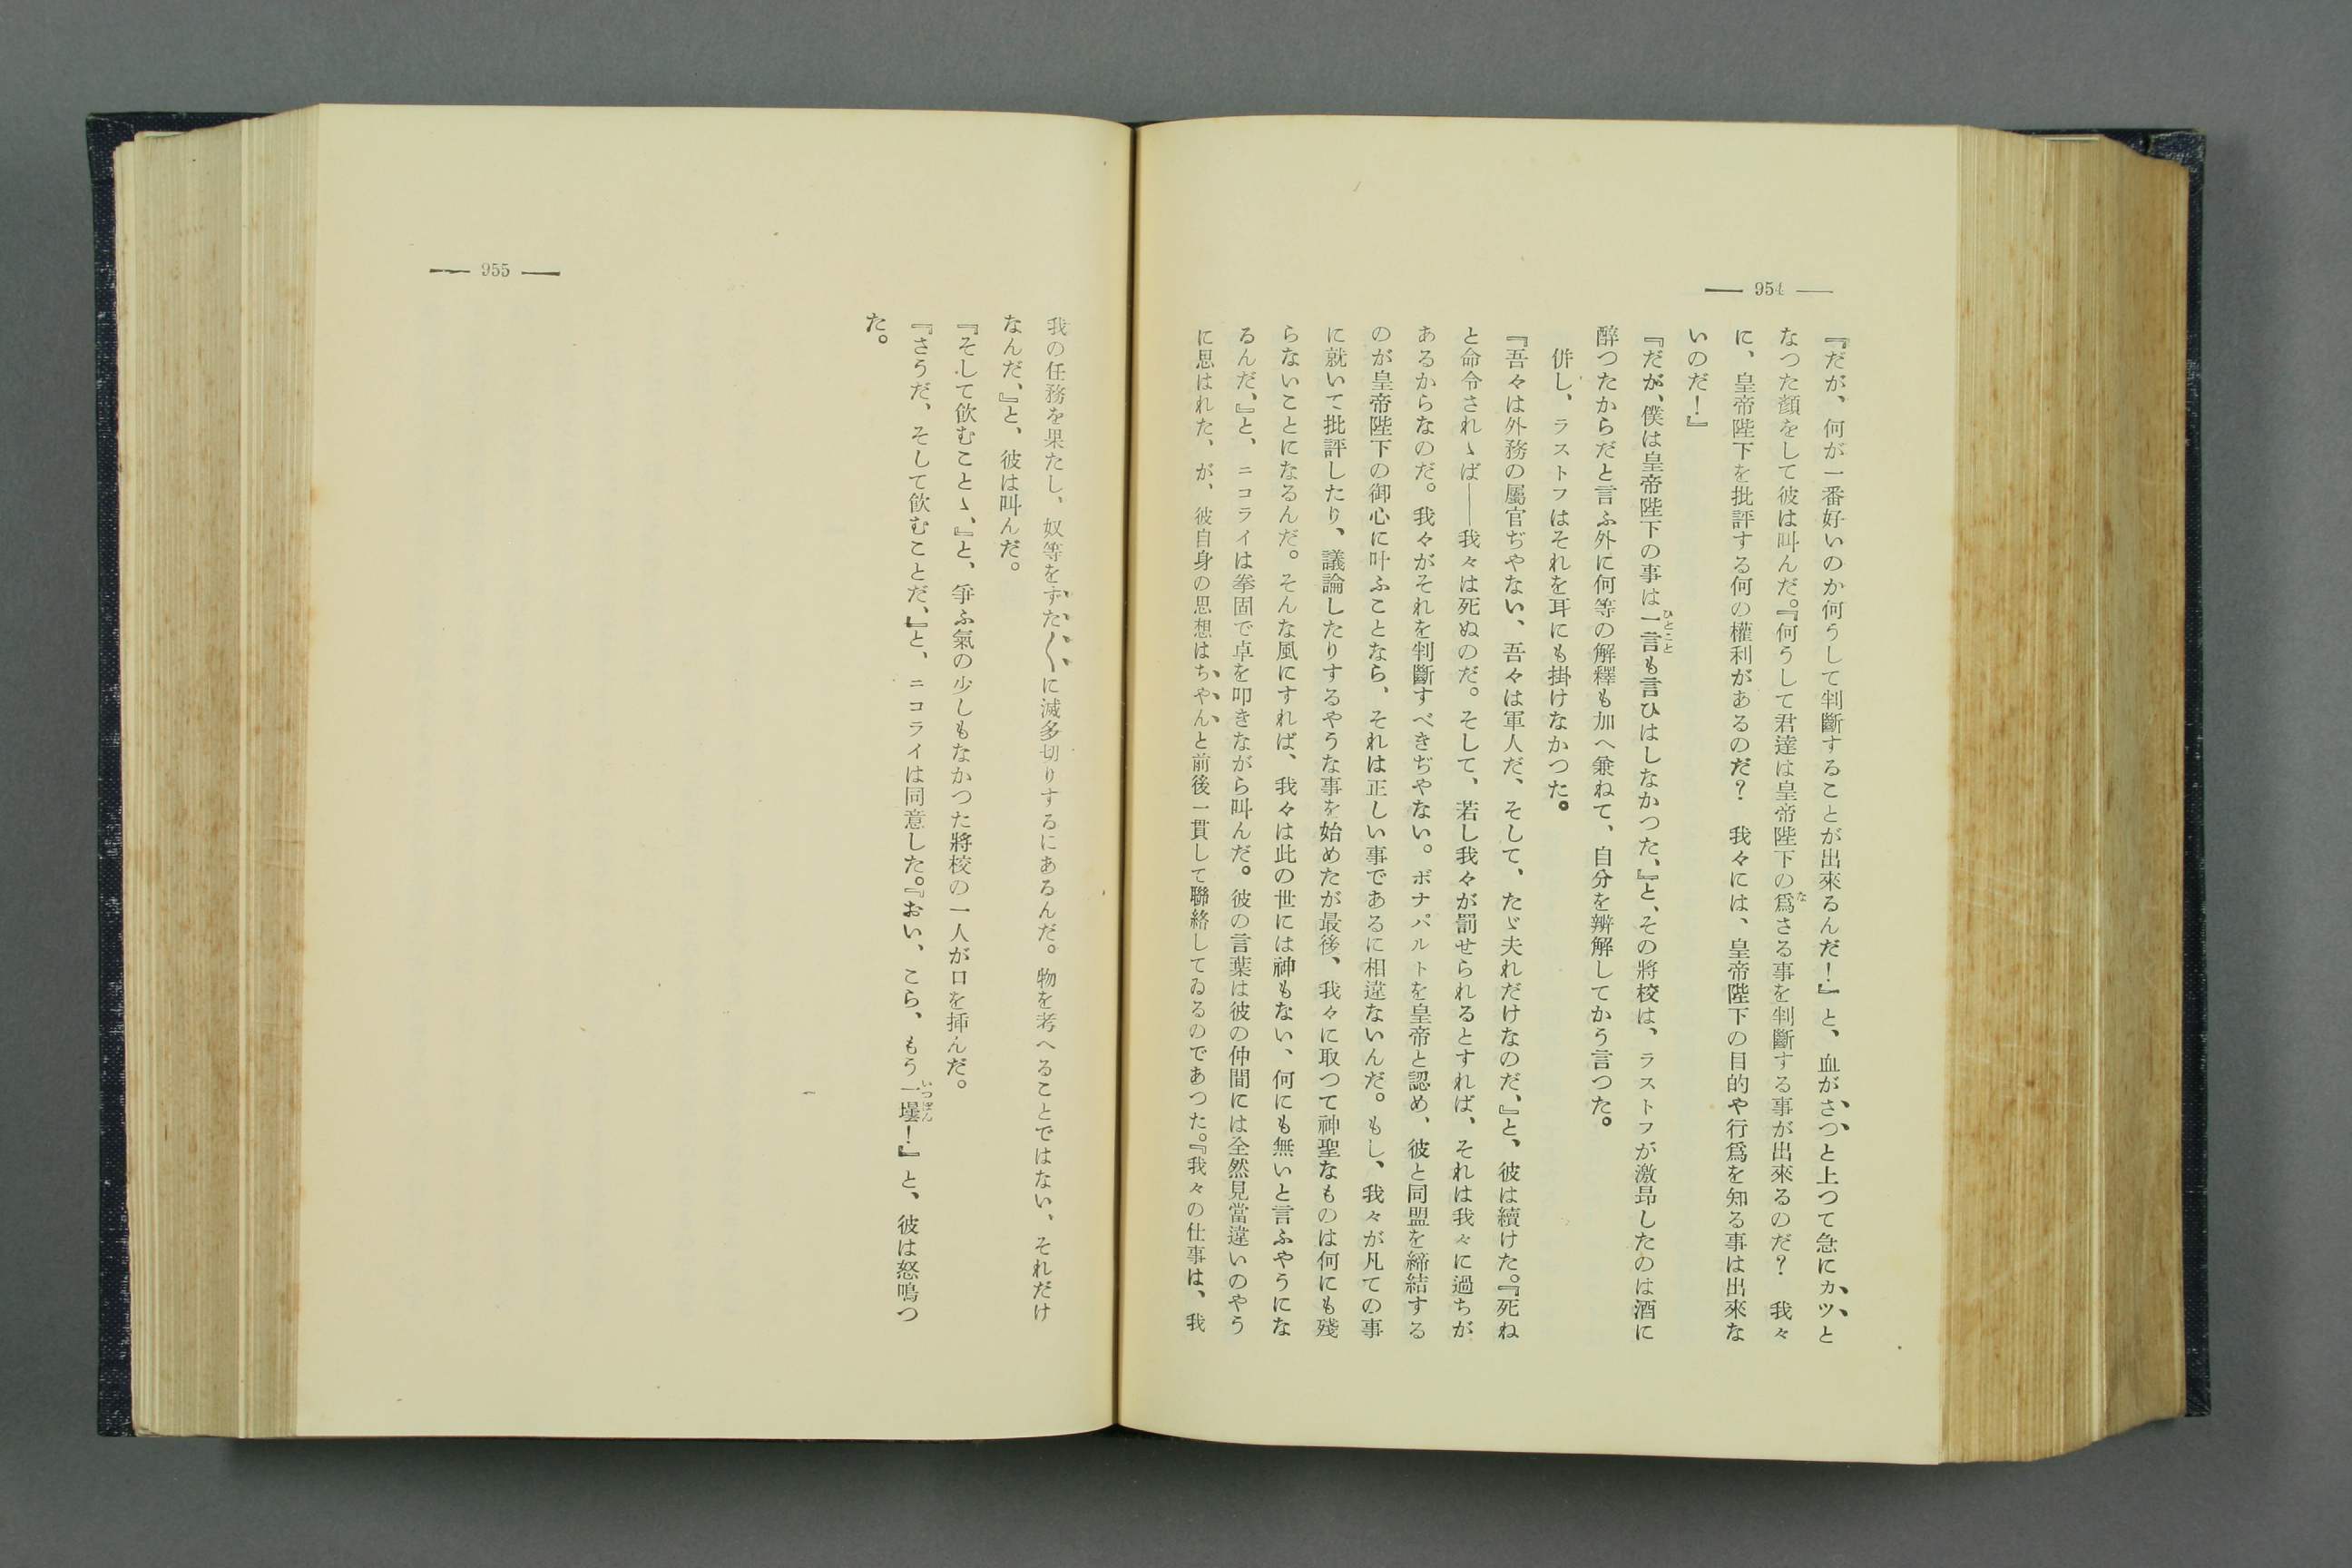 — 954 —
『だが、何が一番好いのか何うして判斷することが出來るんだ！』と、血がさつと上つて急にカッと
なつた顏をして彼は叫んだ。『何うして君達は皇帝陛下の爲さる事を判斷する事が出來るのだ？　我々
に、皇帝陛下を批評する何の權利があるのだ？　我々には、皇帝陛下の目的や行爲を知る事は出來な
いのだ！』
『だが、僕は皇帝陛下の事は一言も言ひはしなかつた、』と、その將校は、ラストフが激昻したのは酒に
醉つたからだと言ふ外に何等の解釋も加へ兼ねて、自分を辨解してかう言つた。
併し、ラストフはそれを耳にも掛けなかつた。
『吾々は外務の屬官ぢやない、吾々は軍人だ、そして、たゞ夫れだけなのだ、』と、彼は續けた。『死ね
と命令されゝば——我々は死ぬのだ。そして、若し我々が罰せられるとすれば、それは我々に過ちが
あるからなのだ。我々がそれを判斷すべきぢやない。ボナパルトを皇帝と認め、彼と同盟を締結する
のが皇帝陛下の御心に叶ふことなら、それは正しい事であるに相違ないんだ。もし、我々が凡ての事
に就いて批評したり、議論したりするやうな事を始めたが最後、我々に取つて神聖なものは何にも殘
らないことになるんだ。そんな風にすれば、我々は此の世には神もない、何にも無いと言ふやうにな
るんだ、』と、ニコライは拳固で卓を叩きながら叫んだ。彼の言葉は彼の仲間には全然見當違いのやう
に思はれた、が、彼自身の思想はちやんと前後一貫して聯絡してゐるのであつた。『我々の仕事は、我
— 955 —
我の任務を果たし、奴等をずた〱に滅多切りするにあるんだ。物を考へることではない、それだけ
なんだ、』と、彼は叫んだ。
『そして飮むことゝ、』と、爭ふ氣の少しもなかつた將校の一人が口を挿んだ。
『さうだ、そして飮むことだ、』と、ニコライは同意した。『おい、こら、もう一壜！』と、彼は怒鳴つ
た。